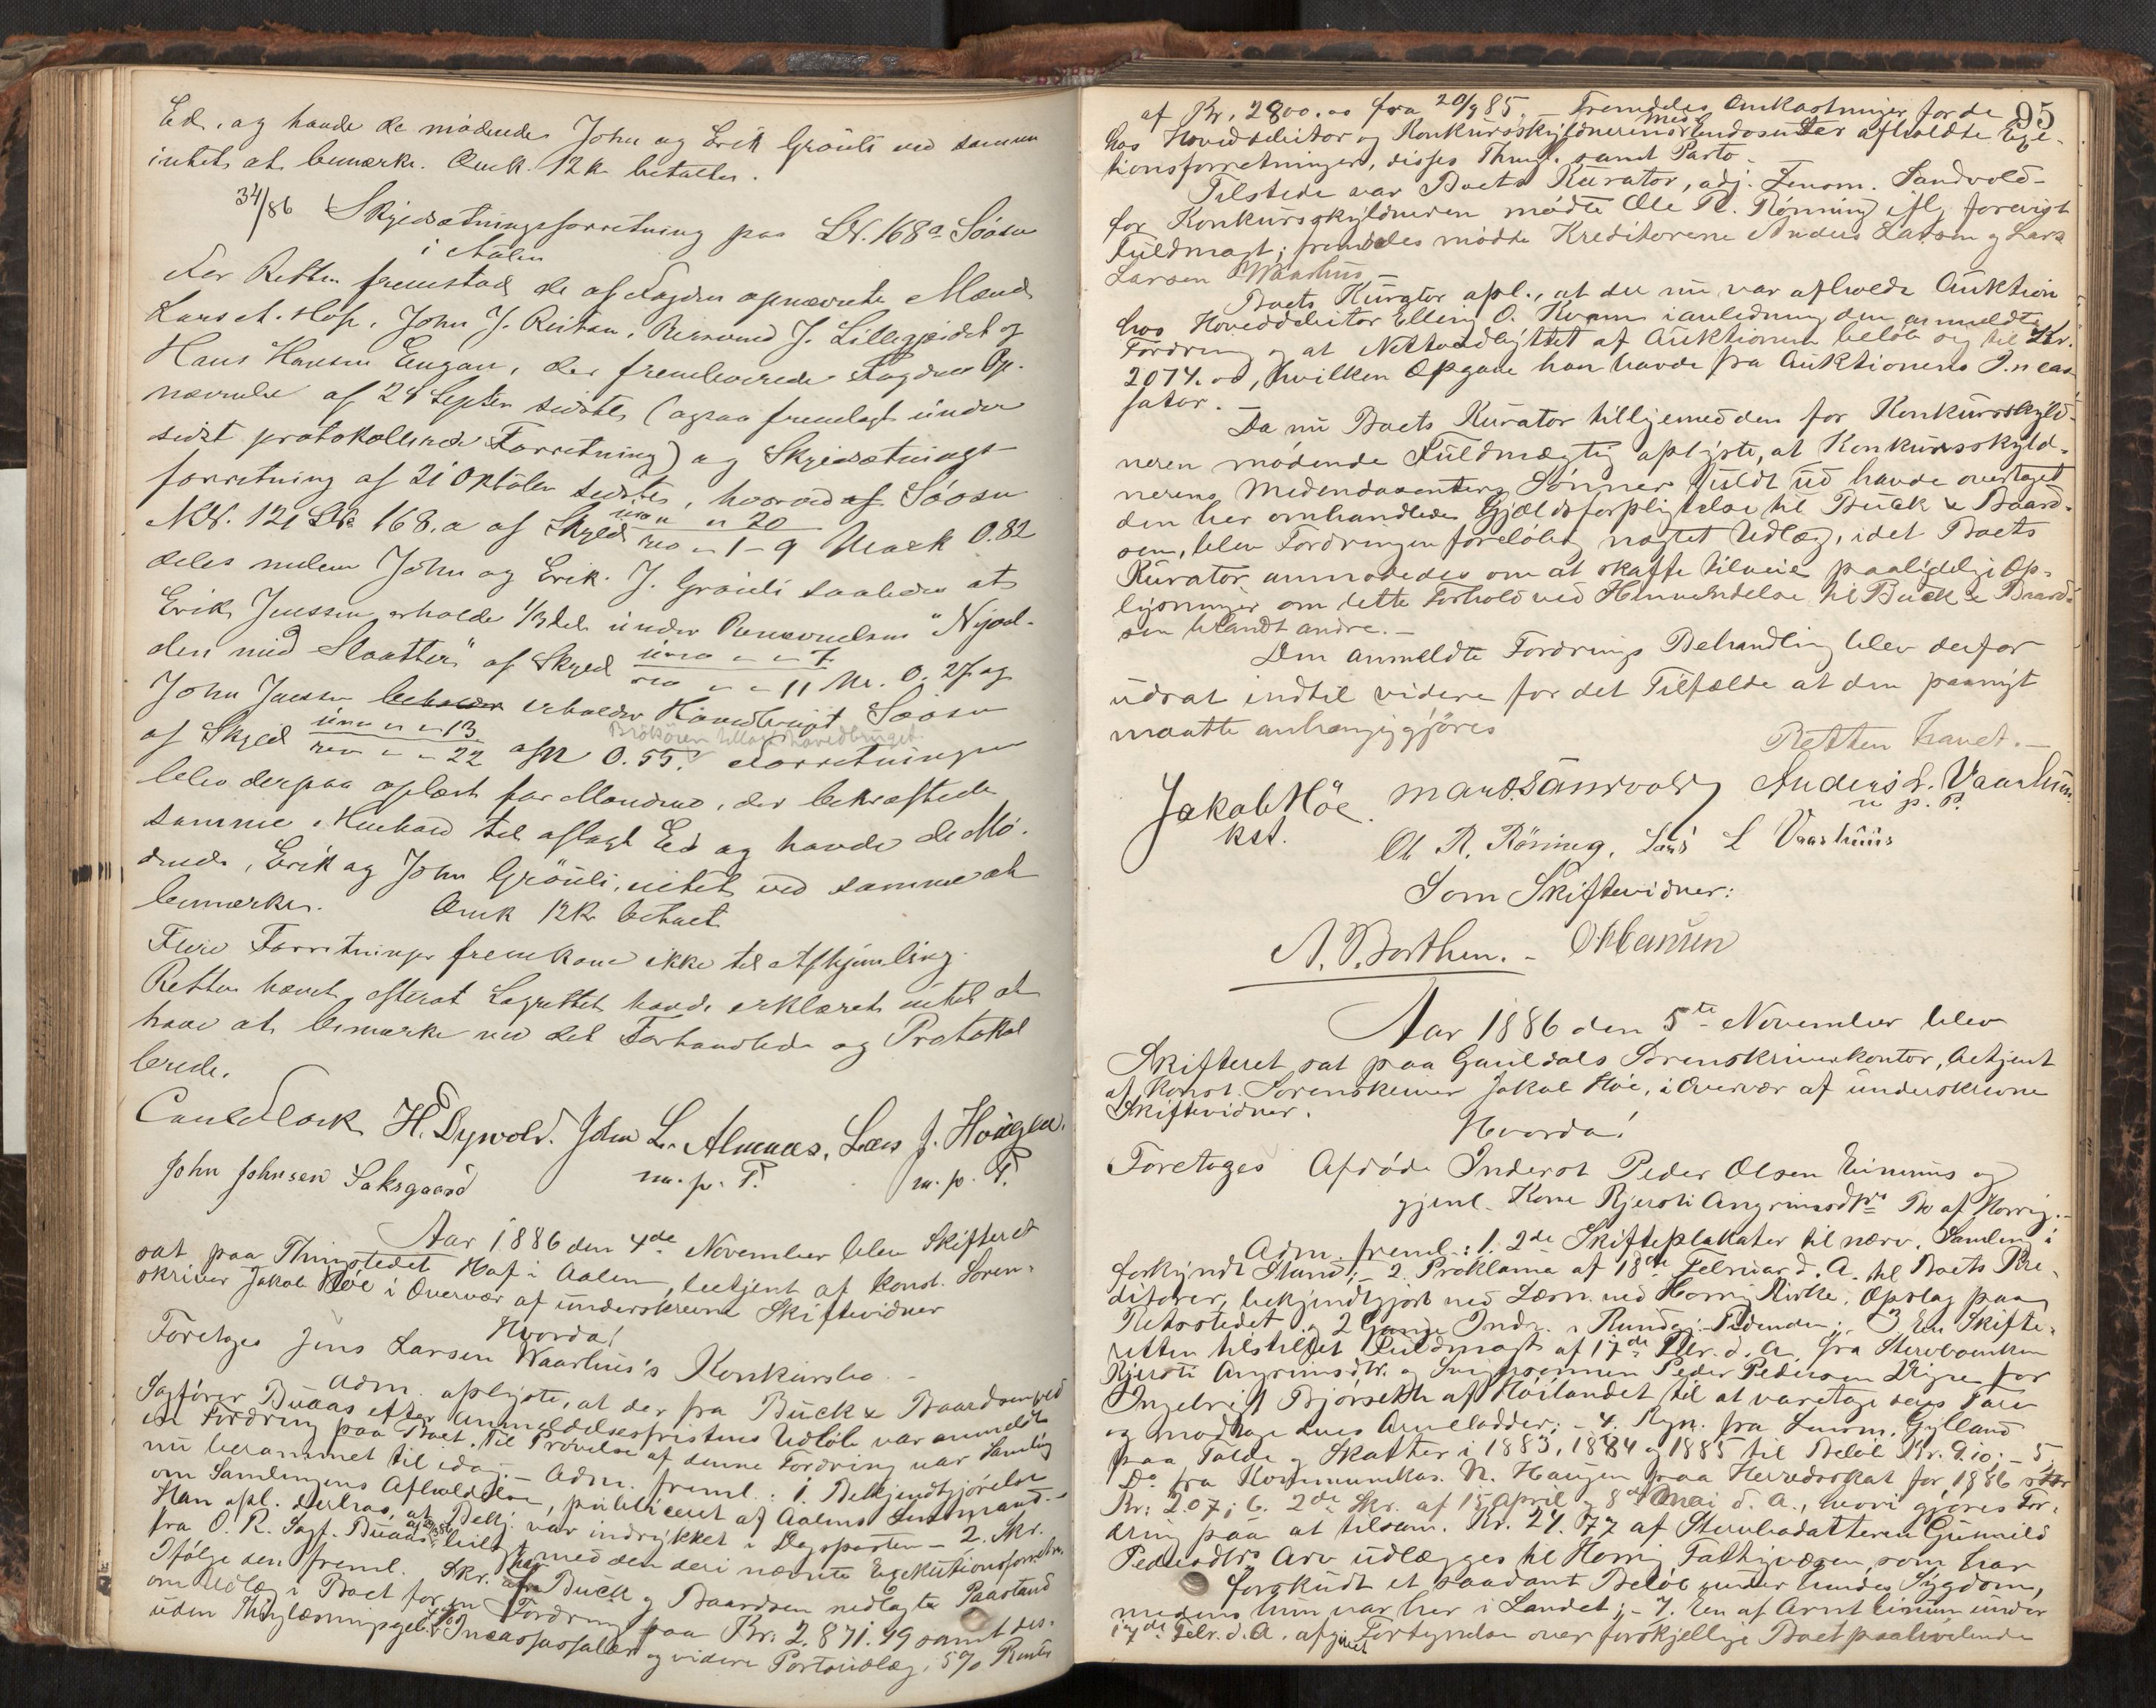 Ed, og havde de mødende John og Erik Grøuli ved samme
intet at bemærke. Omk. 12 Kr betaltes.
34/86 Skyldsætningsforretning paa LN. 168a Soosen
i Aalen
For Retten fremstod de af Fogden opnævnte Mænd
Lars A. Hof, John J. Reitan, J. Lillegjeidet og
Hans Hansen Engan, der fremleverede Fogdens Op-
nævnelse af 24 Septbr sidste (ogsaa fremlagt under
sidst protokollerede Forretning) og Skyldsætnings-
forretning af 21 Oktober sidste, hvorved af Soosen
MN. 121 LN 168.a af Skyld uro " " 20
rev - 1 - 9 Mark 0.82
deles mellem John og Erik J. Grøuli saaledes at
Erik Jenssen erholder 1/3del under Benævnelsen "Njaal-
den med Slaatter" af Skyld uro - - 7
rev - - 11 Mr. 0.27 og
John Jenssen beholder erholder Hovedbruget Soosen
af Skyld uro " " 13
rev - - 22 af M 0.55. Forretningen
tillagt Hovedbruget.
blev derpaa oplæst for Mændene, der bekræftede
samme i Henhold til aflagt Ed og havde de Mø-
dende, Erik og John Grøuli, intet ved samme at
bemærke. Omk 12 Kr betalt
Flere Forretninger fremkom ikke til Afhjemling.
Retten hævet, efterat Lagrettet havde erklæret intet at
have at bemærke ved det Forhandlede og Protokol
lerede.
H. Dyrvold. John L. Almaas, Lars J. Hougen.
John Johnsen Laksgaard m. p. P. m. p. P.
Aar 1886 den 4de November blev Skifteret
sat paa Thingstedet Hof i Aalen, betjent af konst. Soren-
skriver Jakob Høe i Overvær af underskrevne Skiftevidner
Hvorda!
Foretoges Jens Larsen Waarhus's Konkursbo.-
Adm. oplyste, at der fra Buck & Baardsen ved
Sagfører Buaas efter Anmeldelsesfristens Udløb var anmeldt
en Fordring paa Boet. Til Prøvelse af denne Fordring var Samling
nu berammet til idag. - Adm. freml.: 1. Bekjendtgjørelse
om Samlingens Afholdelse, publiceret af Aalens Lensmand.-
Han opl. derhos, at Bekj. var indrykket i Dagsposten - 2. Skr.
fra O. R. Sagf. Buaas bilagt med den deri nævnte Exekutionsforretn.
Ifølge den freml. Skr. har Buck og Baardsen nedlagt Paastand
om Udlæg i Boet for en Fordring paa Kr. 2.871.99 samt des-
uden Thinglæsningsgeb. Incassosalær og videre Portoudlæg, 5% Renter
95
af Kr. 2800.00 fra 20/9 85. - Fremdeles Omkostninger for de
hos Hoveddebitor og Konkursskyldnerens Medendosenter afholdte Exe-
tionsforretninger, disses Thingl. samt Porto.-
Tilstede var Boets Kurator, adj. Lensm. Sandvold -
for Konkursskyldneren mødte Ole R. Rønning ifl. forevist
Fuldmagt; fremdeles mødte Kreditorene Anders Larsen og Lars
Larsen Waarhus.-
Boets Kurator opl., at der nu var afholdt Auktion
hos Hoveddebitor Elling O. Kvam i anledning den anmeldte
Fordring og at Nettoudbyttet af Auktionen beløb sig til Kr.
2074.00, hvilken Opgave han havde fra Auktionens Incas-
sator.-
Da nu Boets Kurator tilligemed den for Konkursskyld-
neren mødende Fuldmægtig oplyste, at Konkursskyld-
nerens Medendosenters Sønner fuldt ud havde overtaget
den her omhandlede Gjældsforpligtelse til Buck & Baard-
sen, blev Fordringen foreløbig nægtet Udlæg, idet Boets
Kurator anmodedes om at skaffe tilveie paalidelige Op-
lysninger om dette Forhold ved Henvendelse til Buck & Baard-
sen blandt andre.-
Den anmeldte Fordrings Behandling blev derfor
udsat indtil videre for det Tilfælde at den paanyt
maatte anhængiggjøres
Retten hævet.-
Jakob Høe. Anders L. Vaarhus
kst. m. p. P.
Ol R. Röning. Lars L Vaarhuus
Som Skiftevidner:
A. P. Borthen. -
Aar 1886 den 5te November blev
Skifteret sat paa Guldals Sorenskriverkontor, betjent
af konst. Sorenskriver Jakob Høe, i Overvær af underskrevne
Skiftevidner.
Hvorda!
Foretoges Afdøde Inderst Peder Olsen Eimuns og
gjenl. Kone Kjersti Angrimsdtrs Bo af Horrig.-
Adm. freml.: 1. 2de Skifteplakater til nærv. Samling i
forkyndt Stand; - 2. Proklama af 18de Februar d. A. til Boets Kre-
ditorer, bekjendtgjort ved Læsn. ved Horrig Kirke, Opslag paa
Retsstedet og 2 Gange Indr. i Rundsg. Tidenden; - 3. En Skifte-
retten tilstillet Fuldmagt af 17de Febr. d. A. fra Stervboenken
Kjersti Angrimsdtr. og Svigersønnen Peder Pedersen for
Ingebrigt Bjørseth af Høilandet til at varetage deres Tarv
og modtage deres Arvelodder; - 4. Regn. fra Lensm. Gylland
paa Tolde og Skatter i 1883, 1884 og 1885 til Beløb Kr. 9.10; - 5
Do fra Kommunekas. N. Haugen paa Herredsskat for 1886 stor
Kr. 2.07; 6. 2de Skr. af 15 April og 8de Mai d. A., hvori gjøres For-
dring paa at tilsam. Kr. 24.77 af Stervbodatteren Gunnild
Pedersdtrs Arv udlægges til Horrig Fattigvæsen, som har
forskudt et saadant Beløb under hendes Sygdom,
medens hun var her i Landet; - 7. En af Arnt under
17de Febr. d. A. afgivet Fortegnelse over forskjellige Boet paahvilende